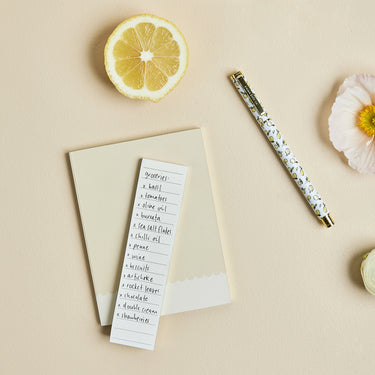 groceries:
x basil
x tomatoes
x olive oil
x burrata
x sea salt flakes
x chilli oil
x penne
x wine
x biscuits
x artichoke
x rocket leaves
x chocolate
x double cream
x strawberries